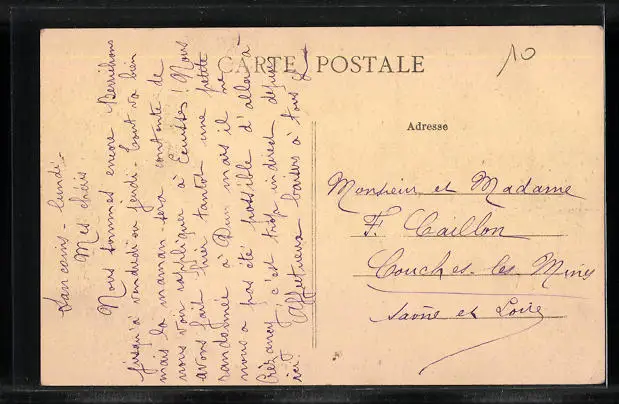 CARTE POSTALE
10
Sancoins - lundi -
Mes chéris
Nous sommes encore Berrichons
jusqu'à vendredi ou jeudi - tout va bien
mais la maman sera contente de
nous voir rappliquer à Ecuisses ! Nous
avons fait hier tantôt une petite
randonnée à Dun mais il ne
nous a pas été possible d'aller à
c'est trop indirect depuis
ici. Affectueux baisers à tous
Adresse
Monsieur et Madame
F. Caillon
Couches-les-Mines
Saône et Loire